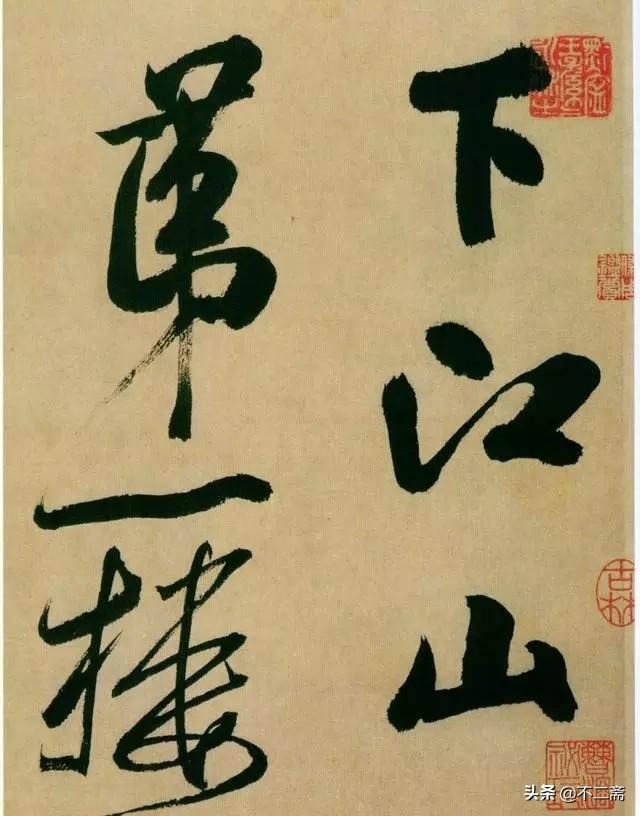 下江山
第一樓
头条 @不二斋